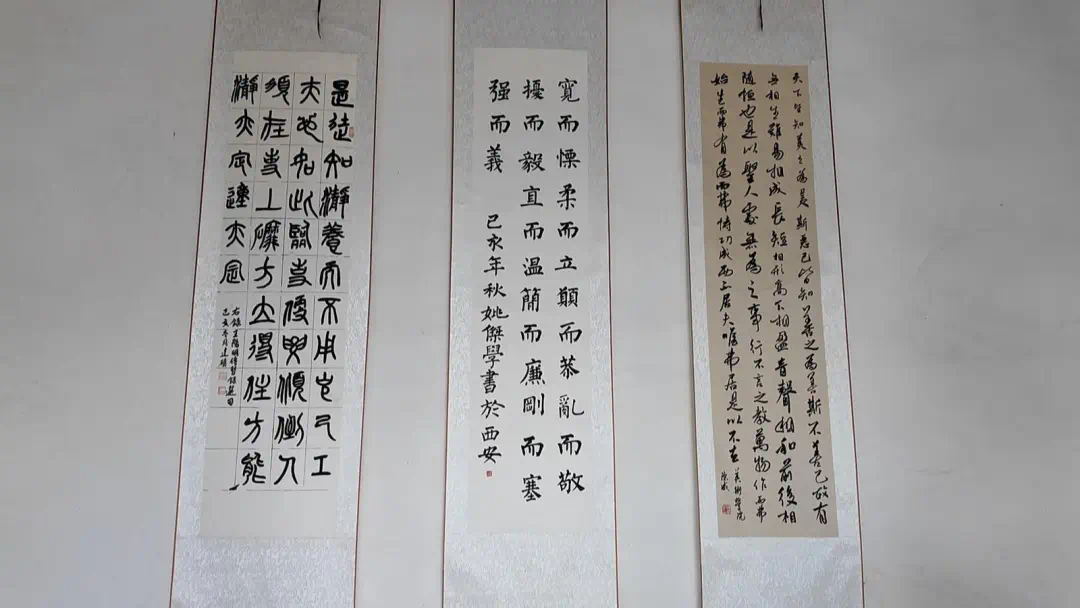 天下皆知美之為美斯惡已皆知善之為善斯不善已故有
無相生難易相成長短相形高下相盈音聲相和前後相
隨恒也是以聖人處無為之事行不言之教萬物作而弗
始生而弗有為而弗恃功成而弗居夫唯弗居是以不去
美術學院
寬而慄柔而立顛而恭亂而敬
擾而毅直而温簡而廉剛而塞
强而義
己亥年秋姚傑學書於西安
是徒知瀞養而不用克己工
夫也如此臨事便要傾倒人
須在事上磨方立得住方能
瀞亦定動亦定
右錄王陽明傳習錄選句
己亥冬月建